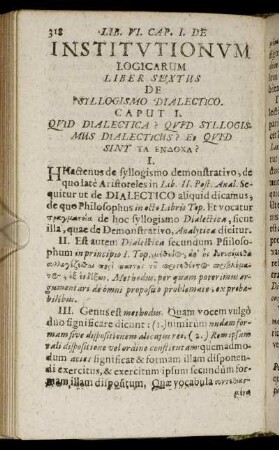 318 LIB. VI. CAP. I. DE
INSTITVTIONVM
LOGICARUM
LIBER SEXTUS
DE
SYLLOGISMO DIALECTICO.
CAPUT I.
QUID DIALECTICA? QUID SYLLOGIS-
MUS DIALECTICUS? Et QUID
SINT ΤΑ ΕΝΔΟΧΑ?
I.
HActenus de syllogismo demonstrativo, de
quo latè Aristoteles in Lib. II. Post. Anal. Se-
quitur ut de DIALECTICO aliquid dicamus,
de quo Philosophus in octo Libris Top. Et vocatur
πραγματεία de hoc syllogismo Dialectica, sicut
illa, quae de Demonstrativo, Analytica dicitur.
II. Est autem Dialectica secundum Philoso-
phum in principio I. Top. μέθοδος,
Methodus, per quam poterimus ar-
gumentari de omni proposito problemate, ex proba-
bilibus.
III. Genus est methodus. Quam vocem vulgò
duo significare dicunt: (1.) nimirum nudam for-
mam sive dispositionem alicujus rei. (2.) Rem ipsam
tali dispositione vel ordine constitutam: quemadmo-
dum acies significat & formam illam disponen-
di exercitus, & exercitum ipsum secundum for-
mam illam dispositum. Quae vocabula